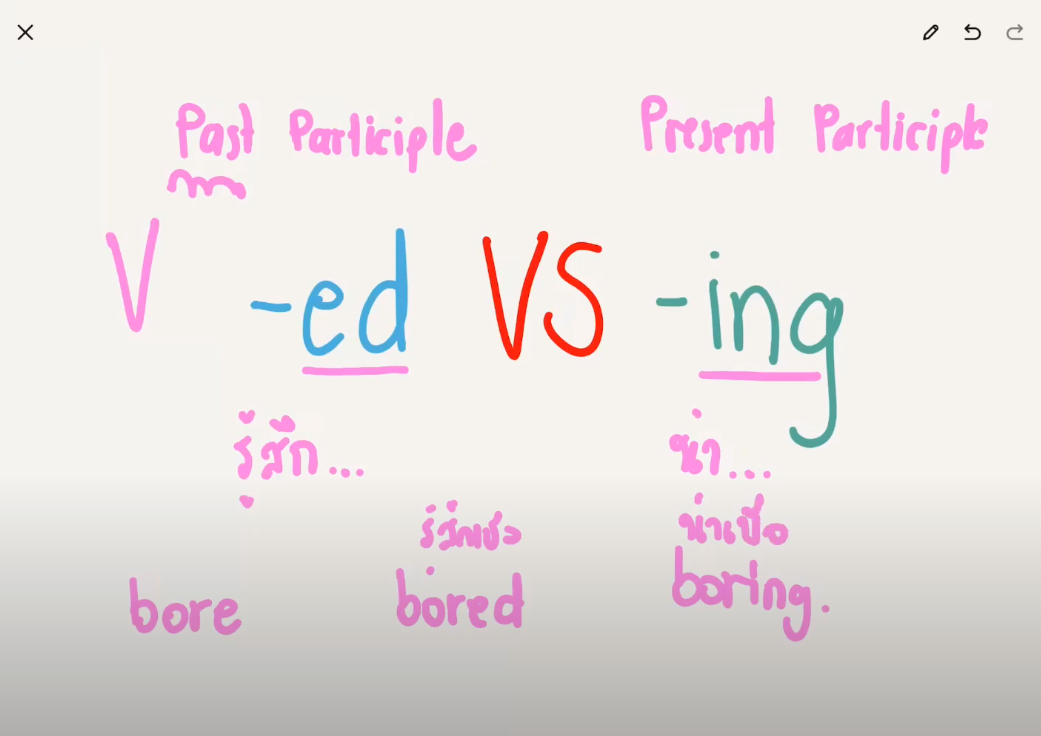 Past Participle Present Participle
V -ed VS -ing
รู้สึก... น่า...
รู้สึกเบื่อ น่าเบื่อ
bore bored boring.